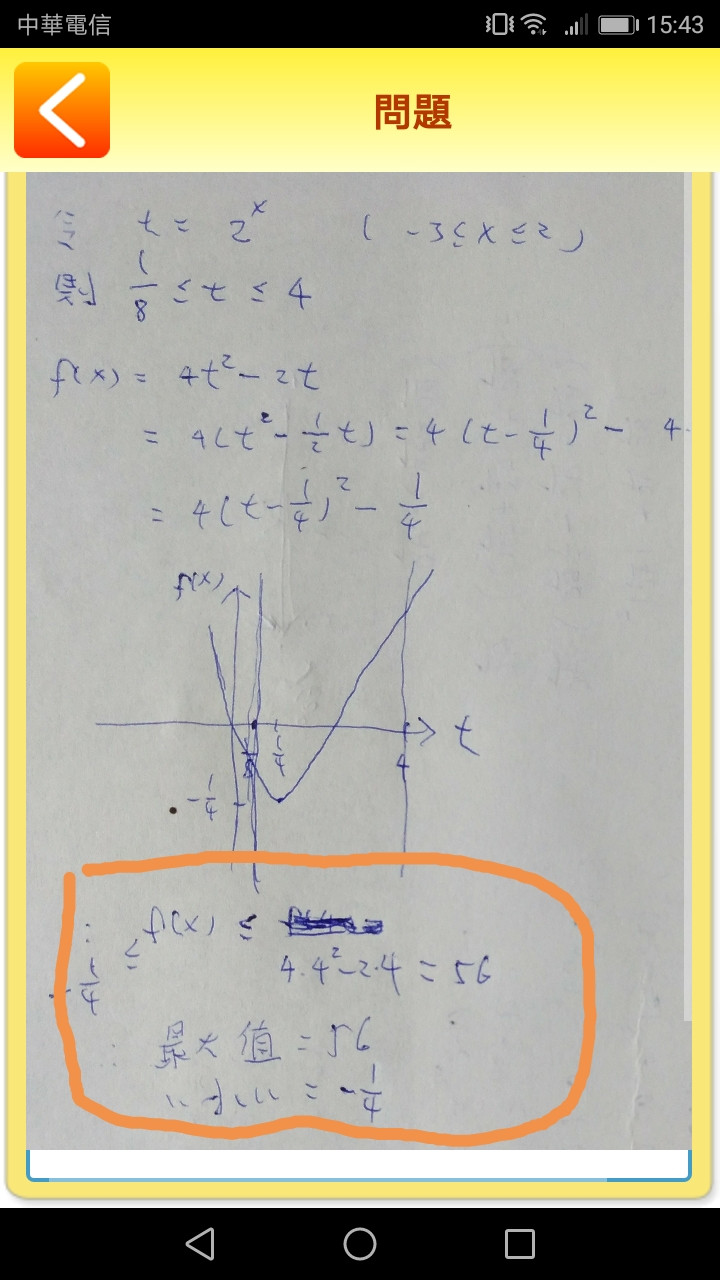 中華電信 15:43
問題
令 t = 2^x ( -3 ≤ x ≤ 2 )
則 1/8 ≤ t ≤ 4
f(x) = 4t² - 2t
= 4(t² - 1/2 t) = 4(t - 1/4)² - 4·
= 4(t - 1/4)² - 1/4
f(x)
t
1/8 1/4 4
-1/4
∴ -1/4 ≤ f(x) ≤ 4·4²-2·4 = 56
∴ 最大值 = 56
= -1/4